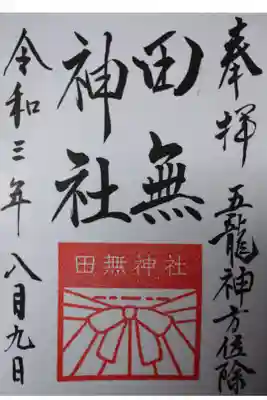 奉拝
五龍神方位除
田無
神社
田無神社
令和三年八月九日